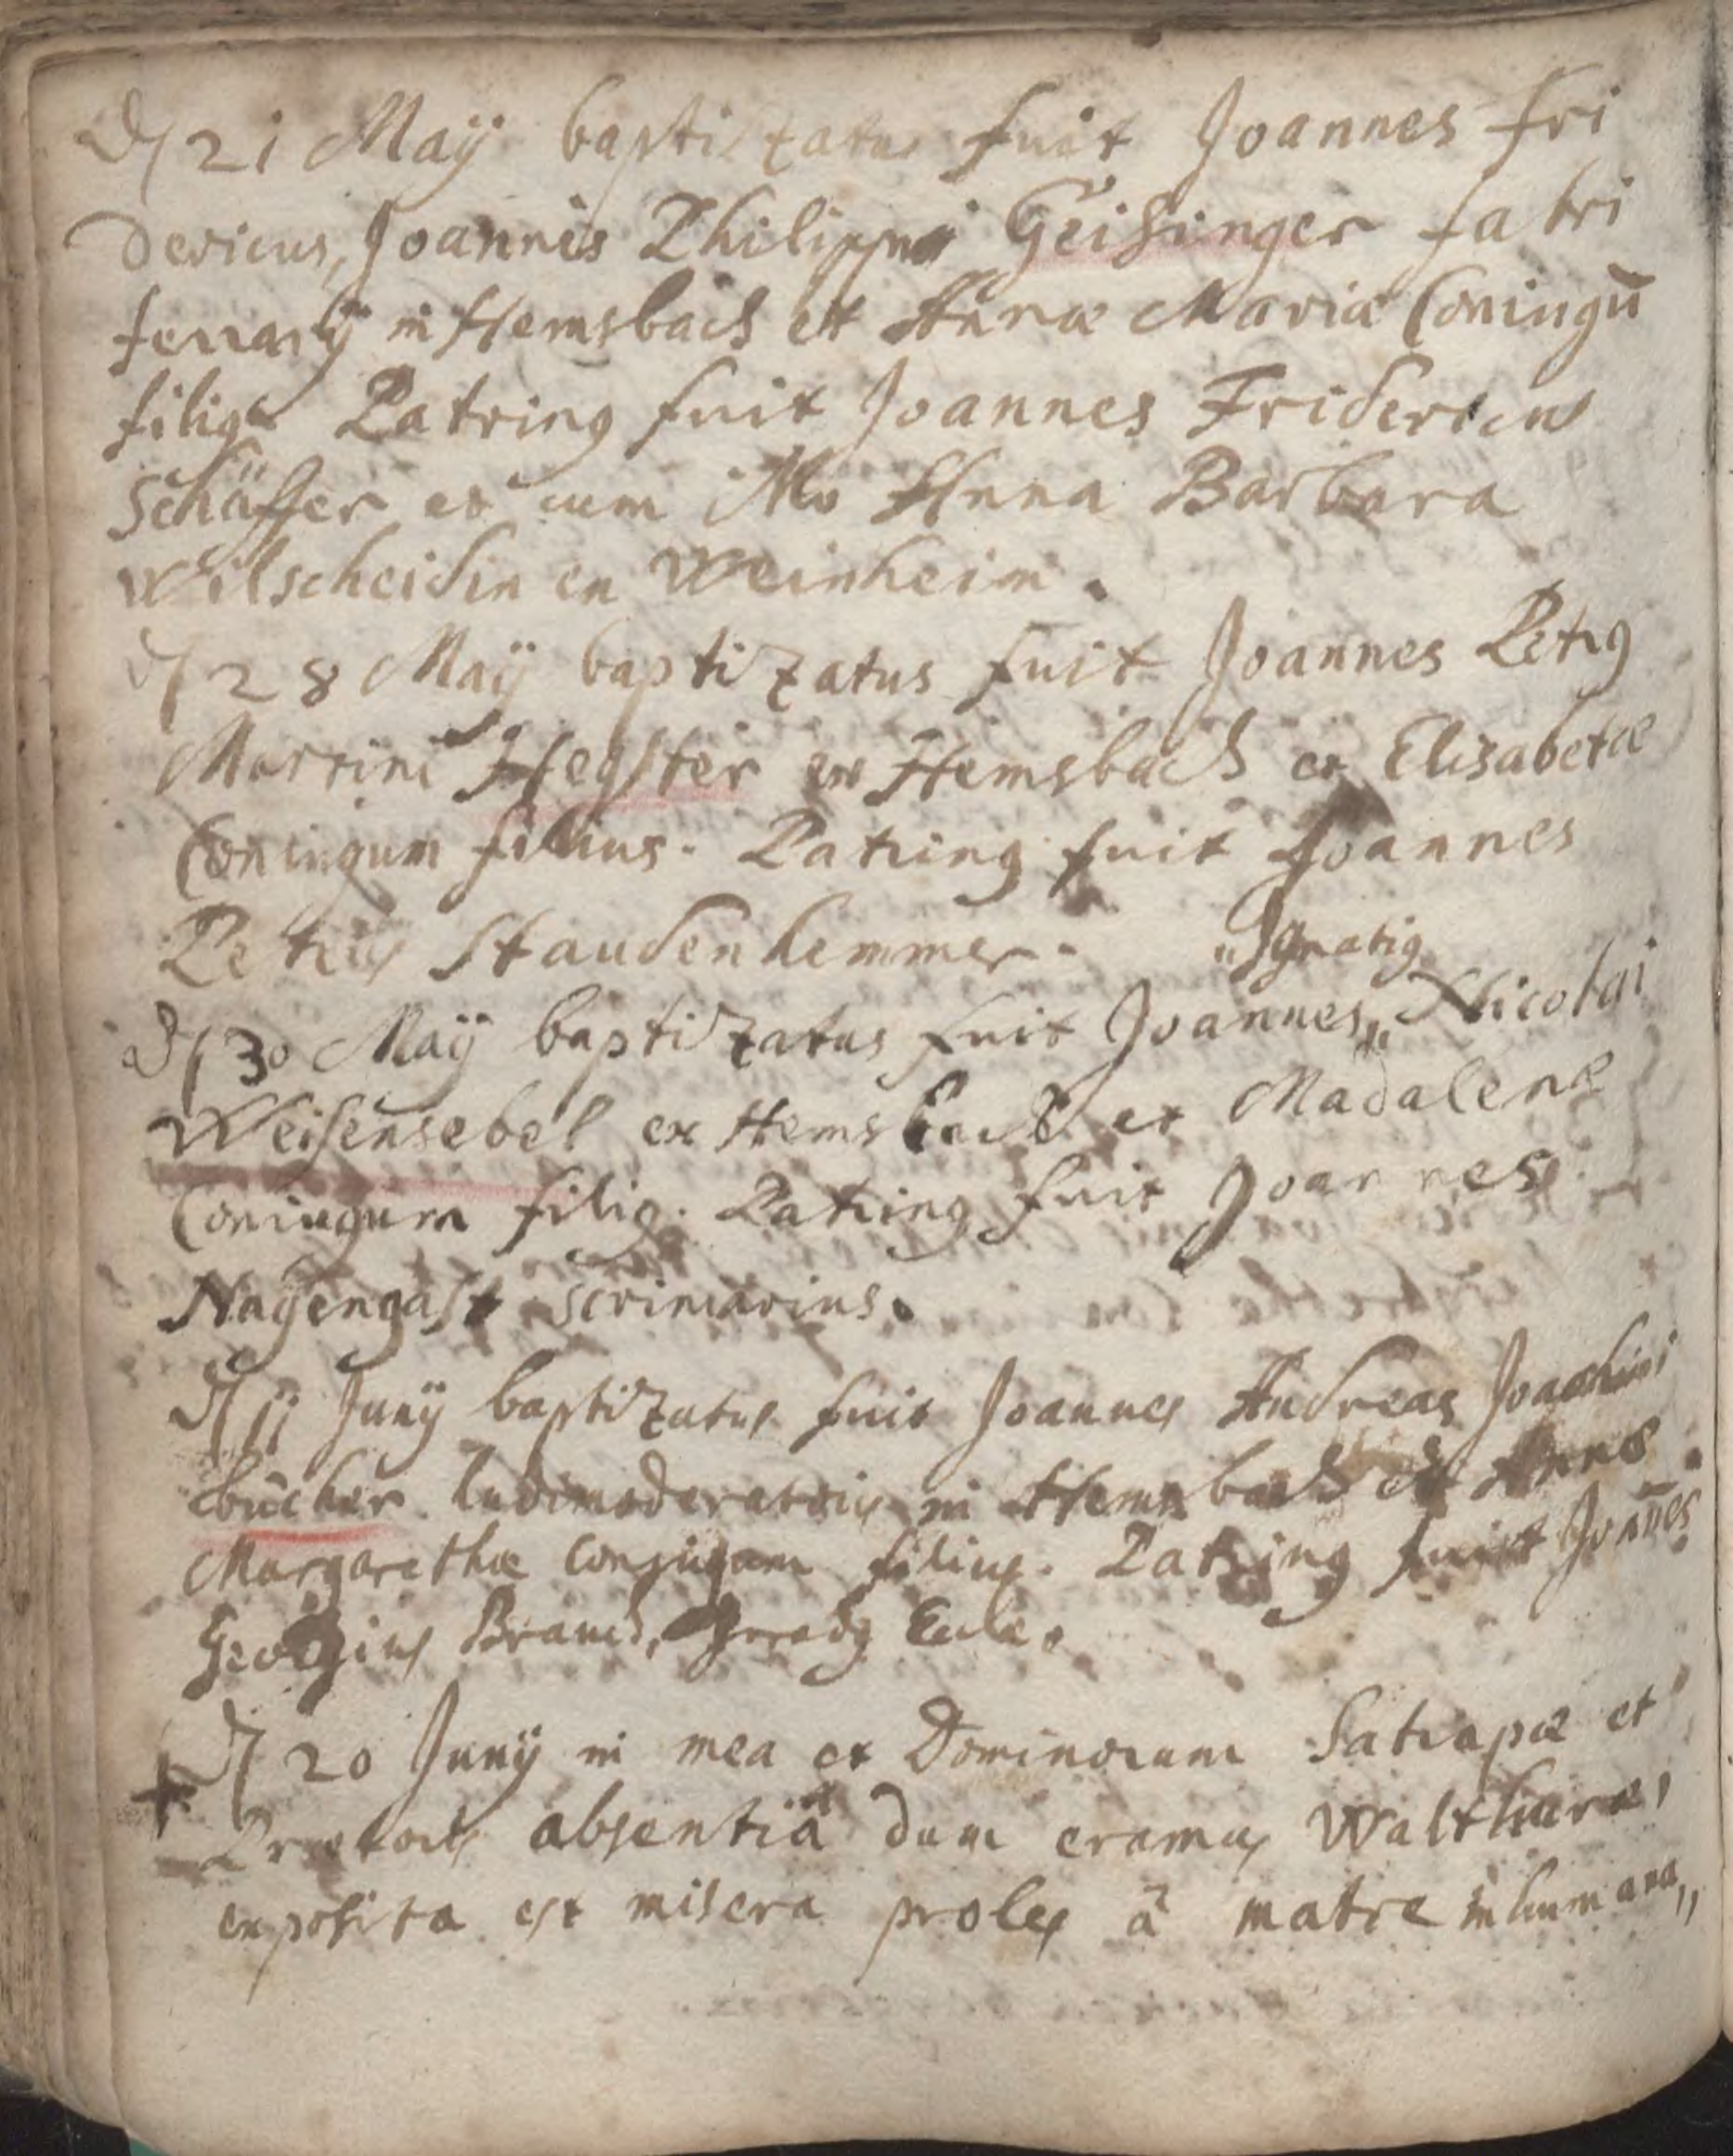 d 21 Maÿ baptizatus fuit Joannes Fri
dericus, Joannis Philippi Geisinger fabri
ferrarÿ in Hemsbach et Annæ Mariæ Coniugū
filig Patring fuit Joannes Fridericus
Schäffer et cum illo Anna Barbara
Wilscheidin ex Weinheim.
d 28 Maÿ baptizatus fuit Joannes Petrg
Martini Hegster ex Hemsbach et Elisabetæ
Coniugum filius. Patring fuit Joannes
Petrus Staudenhemmer.
"Ignatig
d 30 Maÿ baptizatus fuit Joannes,, Nicolai
Weisensebel ex Hemsbach et Madalenæ
Coniugum filig. Patring fuit Joannes
Nagengast scriniarius.
d 11 Junÿ baptizatus fuit Joannes Andreas Joachimi
bücher ludimoderatoris in Hemsbach et Annæ
Margarethæ Conjugum filius. Patring fuit Joañes
Georgius
d 20 Junÿ in mea et Dominorum Satrapæ et
Prætoris absentiâ dum eramus Walthuræ,
exposita est misera proles à matre inhumana,,